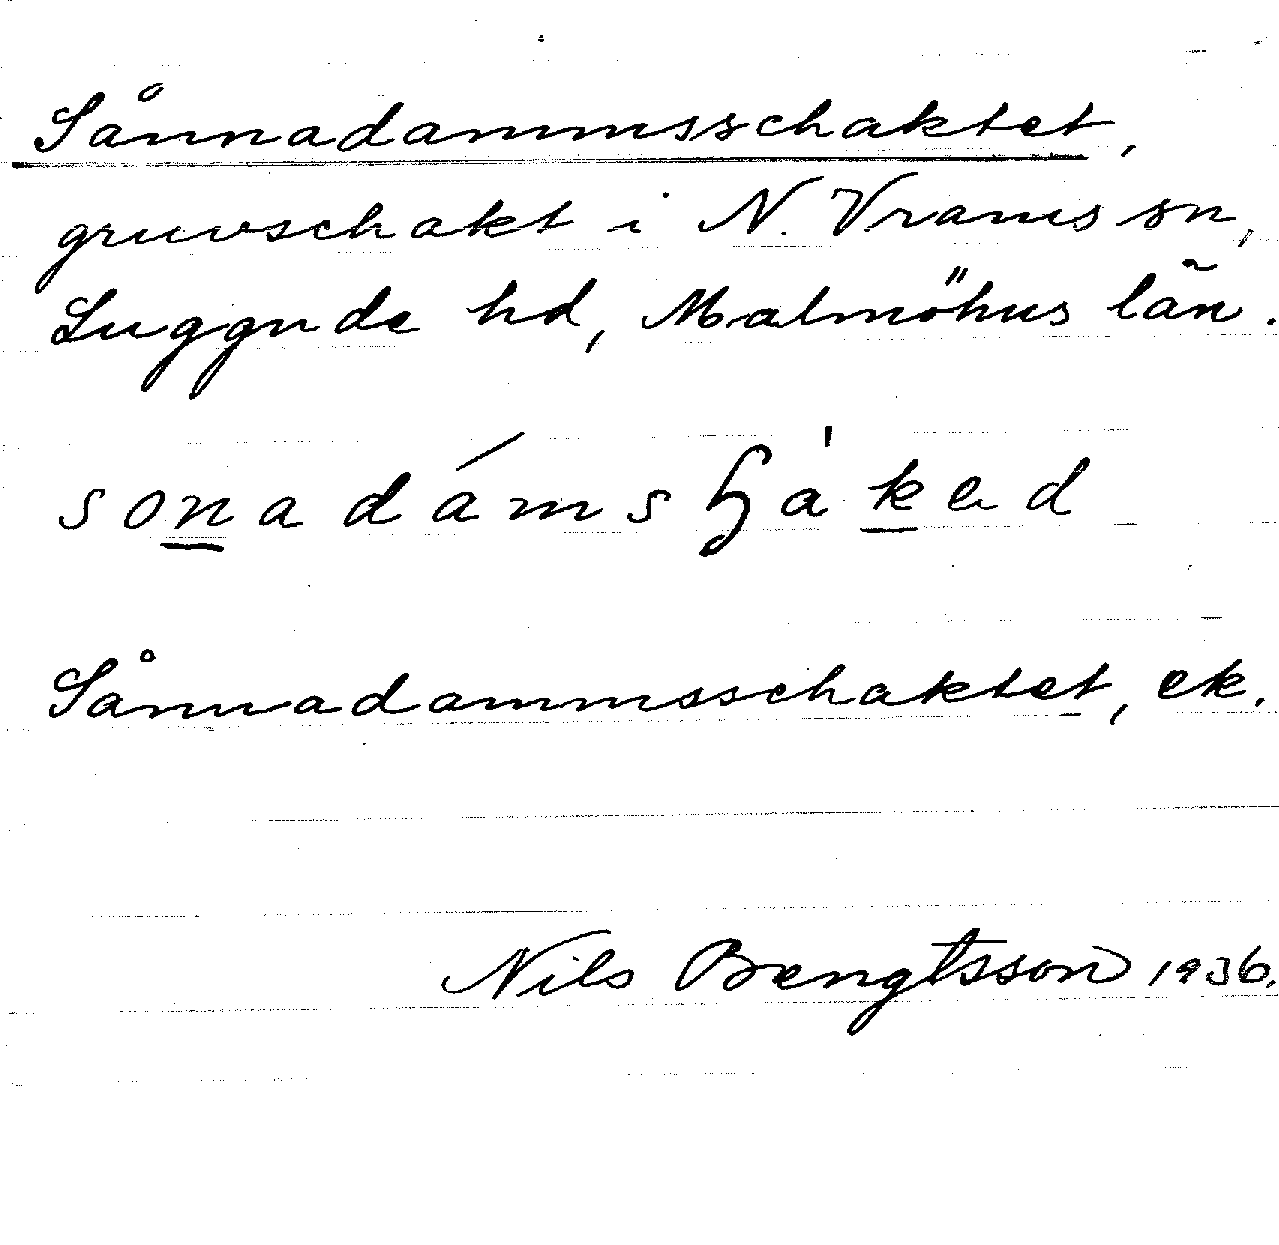 Sånnadammsschaktet,
gruvschakt i N. Vrams sn,
Luggude hd, Malmöhus län.
Sånnadammsschaktet, ek.
Nils Bengtsson 1936.